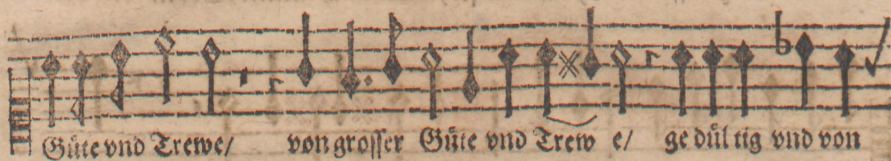 Güte vnd Trewe/ von grosser Güte vnd Trew e/ ge dül tig vnd von